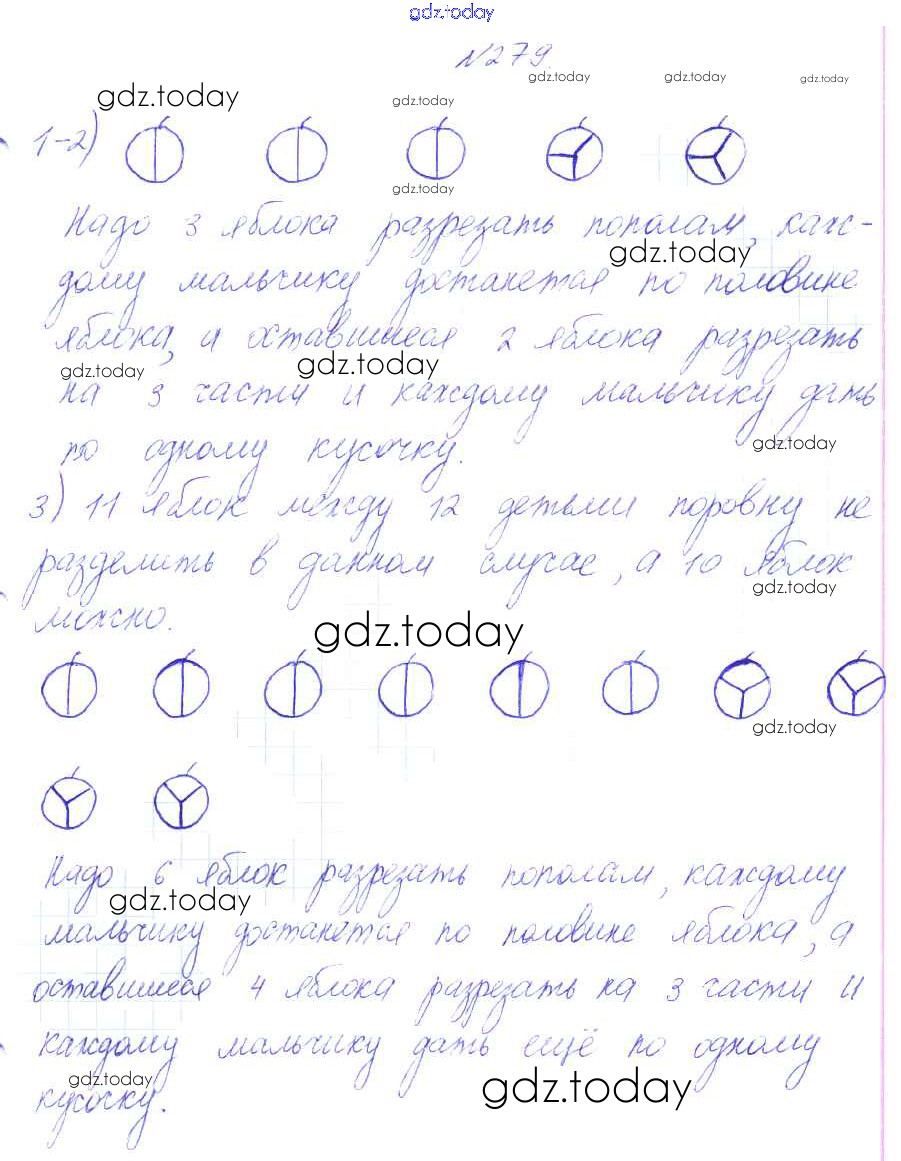 gdz.today
№279.
gdz.today gdz.today gdz.today gdz.today gdz.today
1-2)
gdz.today
Надо 3 яблока разрезать пополам, каж-
gdz.today
дому мальчику достанется по половине
яблока, а оставшиеся 2 яблока разрезать
gdz.today gdz.today
на 3 части и каждому мальчику дать
gdz.today
по одному кусочку.
3) 11 яблок между 12 детьми поровну не
разделить в данном случае, а 10 яблок
gdz.today
можно.
gdz.today
gdz.today
Надо 6 яблок разрезать пополам, каждому
gdz.today
мальчику достанется по половине яблока, а
оставшиеся 4 яблока разрезать на 3 части и
каждому мальчику дать ещё по одному
gdz.today gdz.today
кусочку.